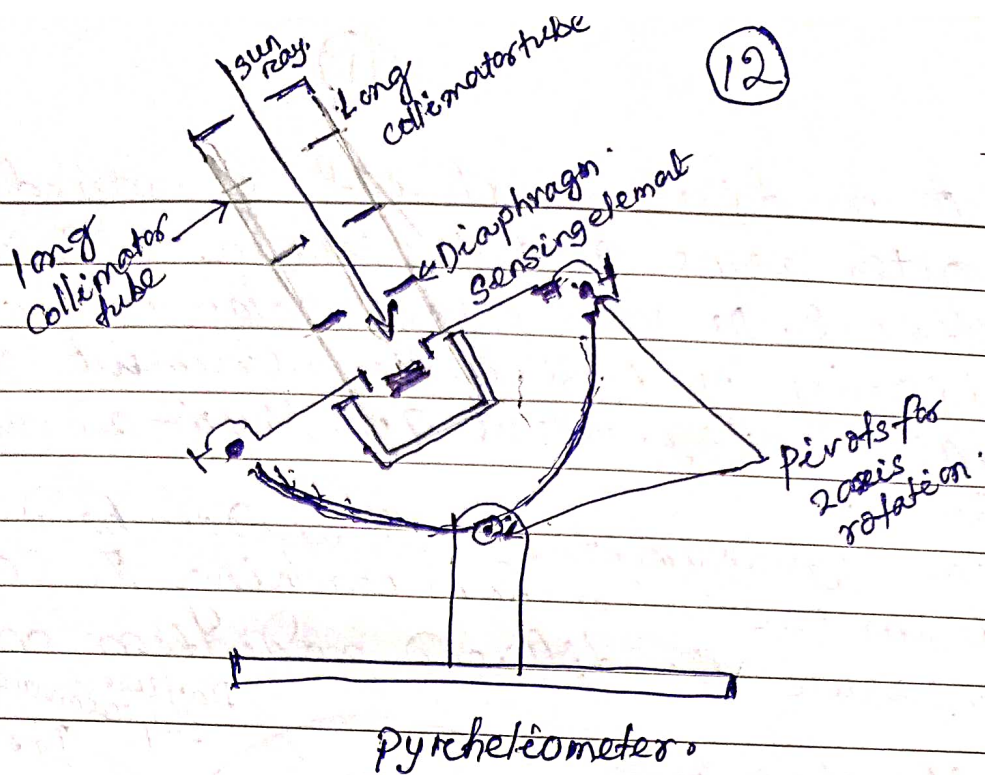 12
sun
ray.
Long
collimator tube
Long
collimator
tube
Diaphragn.
sensing elemat
pivots for
2 axis
rotation.
pyrheliometer.